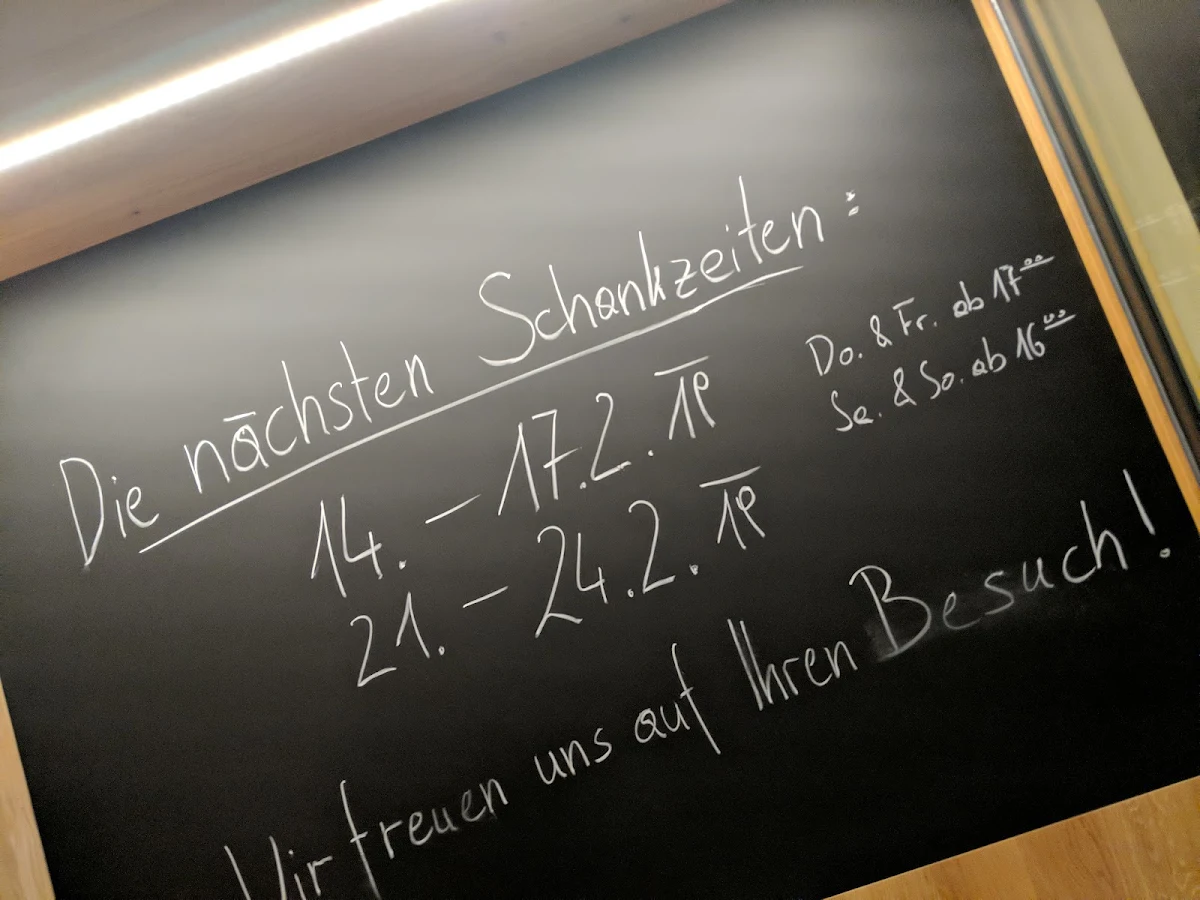 Die nächsten Schankzeiten:
14. – 17.2. 19
21. – 24.2. 19
Do. & Fr. ab 17⁰⁰
Sa. & So. ab 16⁰⁰
Wir freuen uns auf Ihren Besuch!